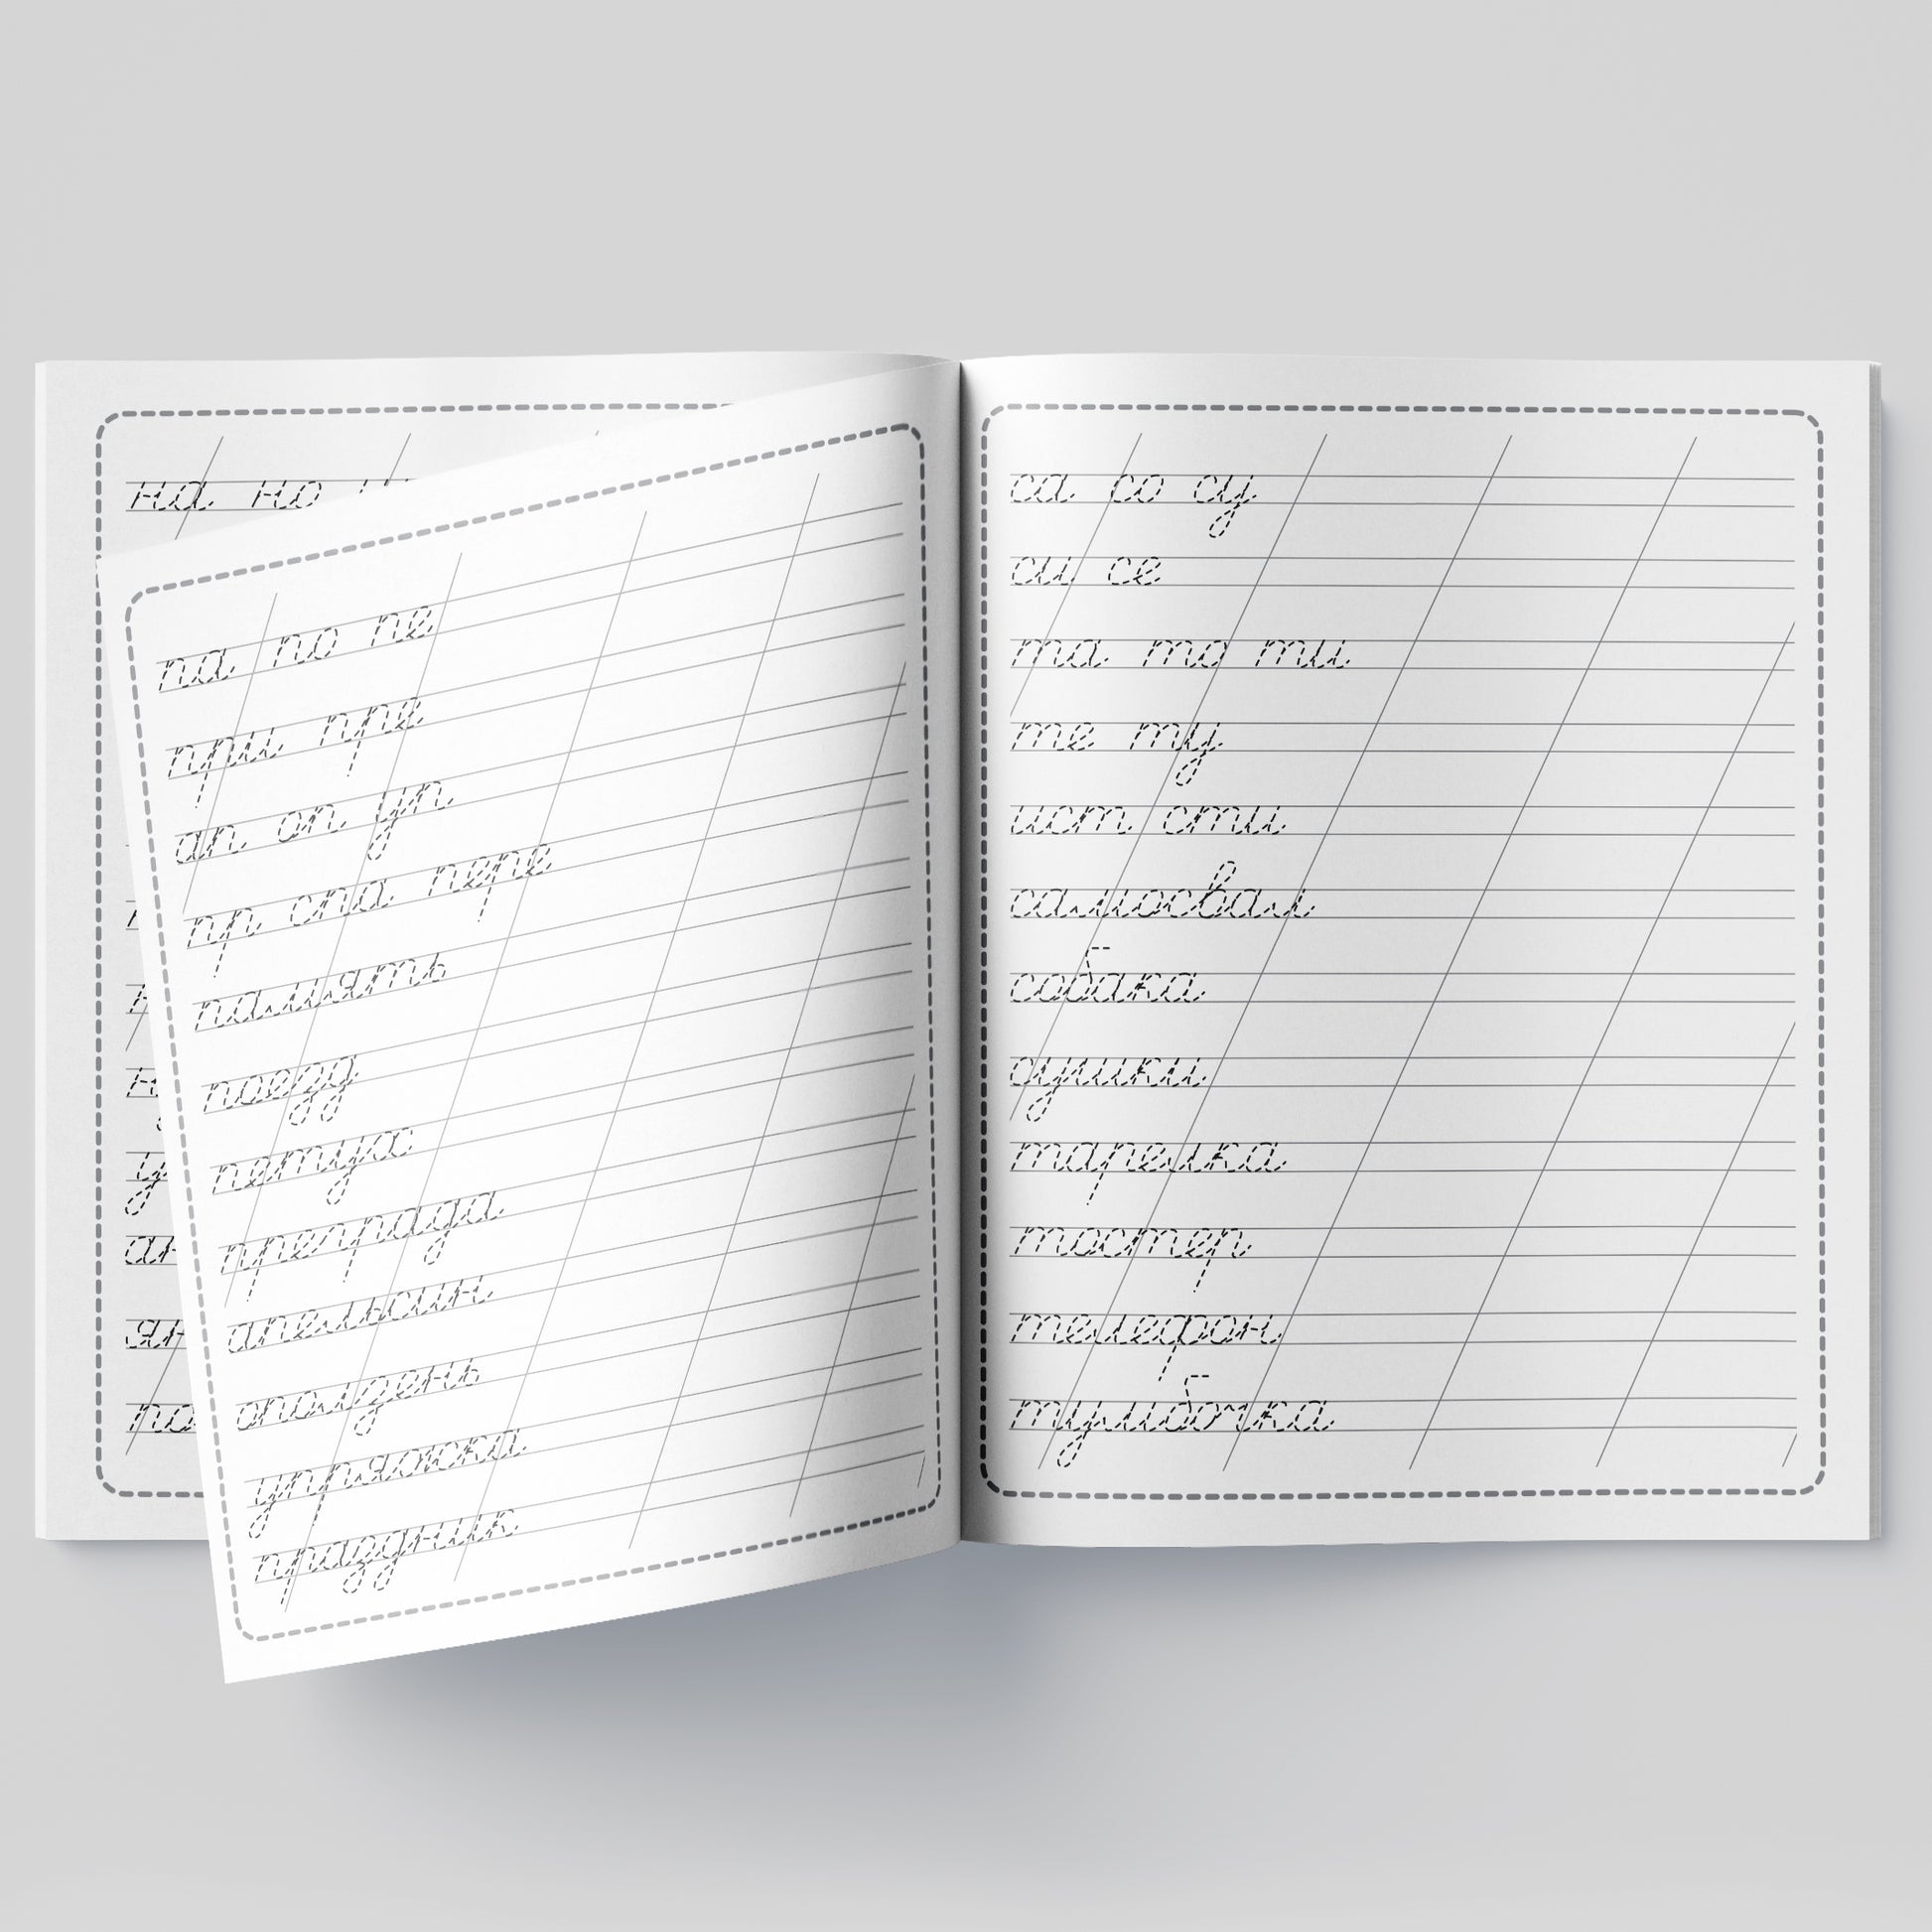 на но
па по пе
при пре
ап оп уп
пр спа пере
память
поезд
петух
преграда
апельсин
упряжка
праздник
са со су
си се
та то ти
те ту
ист сти
самосвал
собака
сумки
тарелка
тостер
телефон
тумбочка